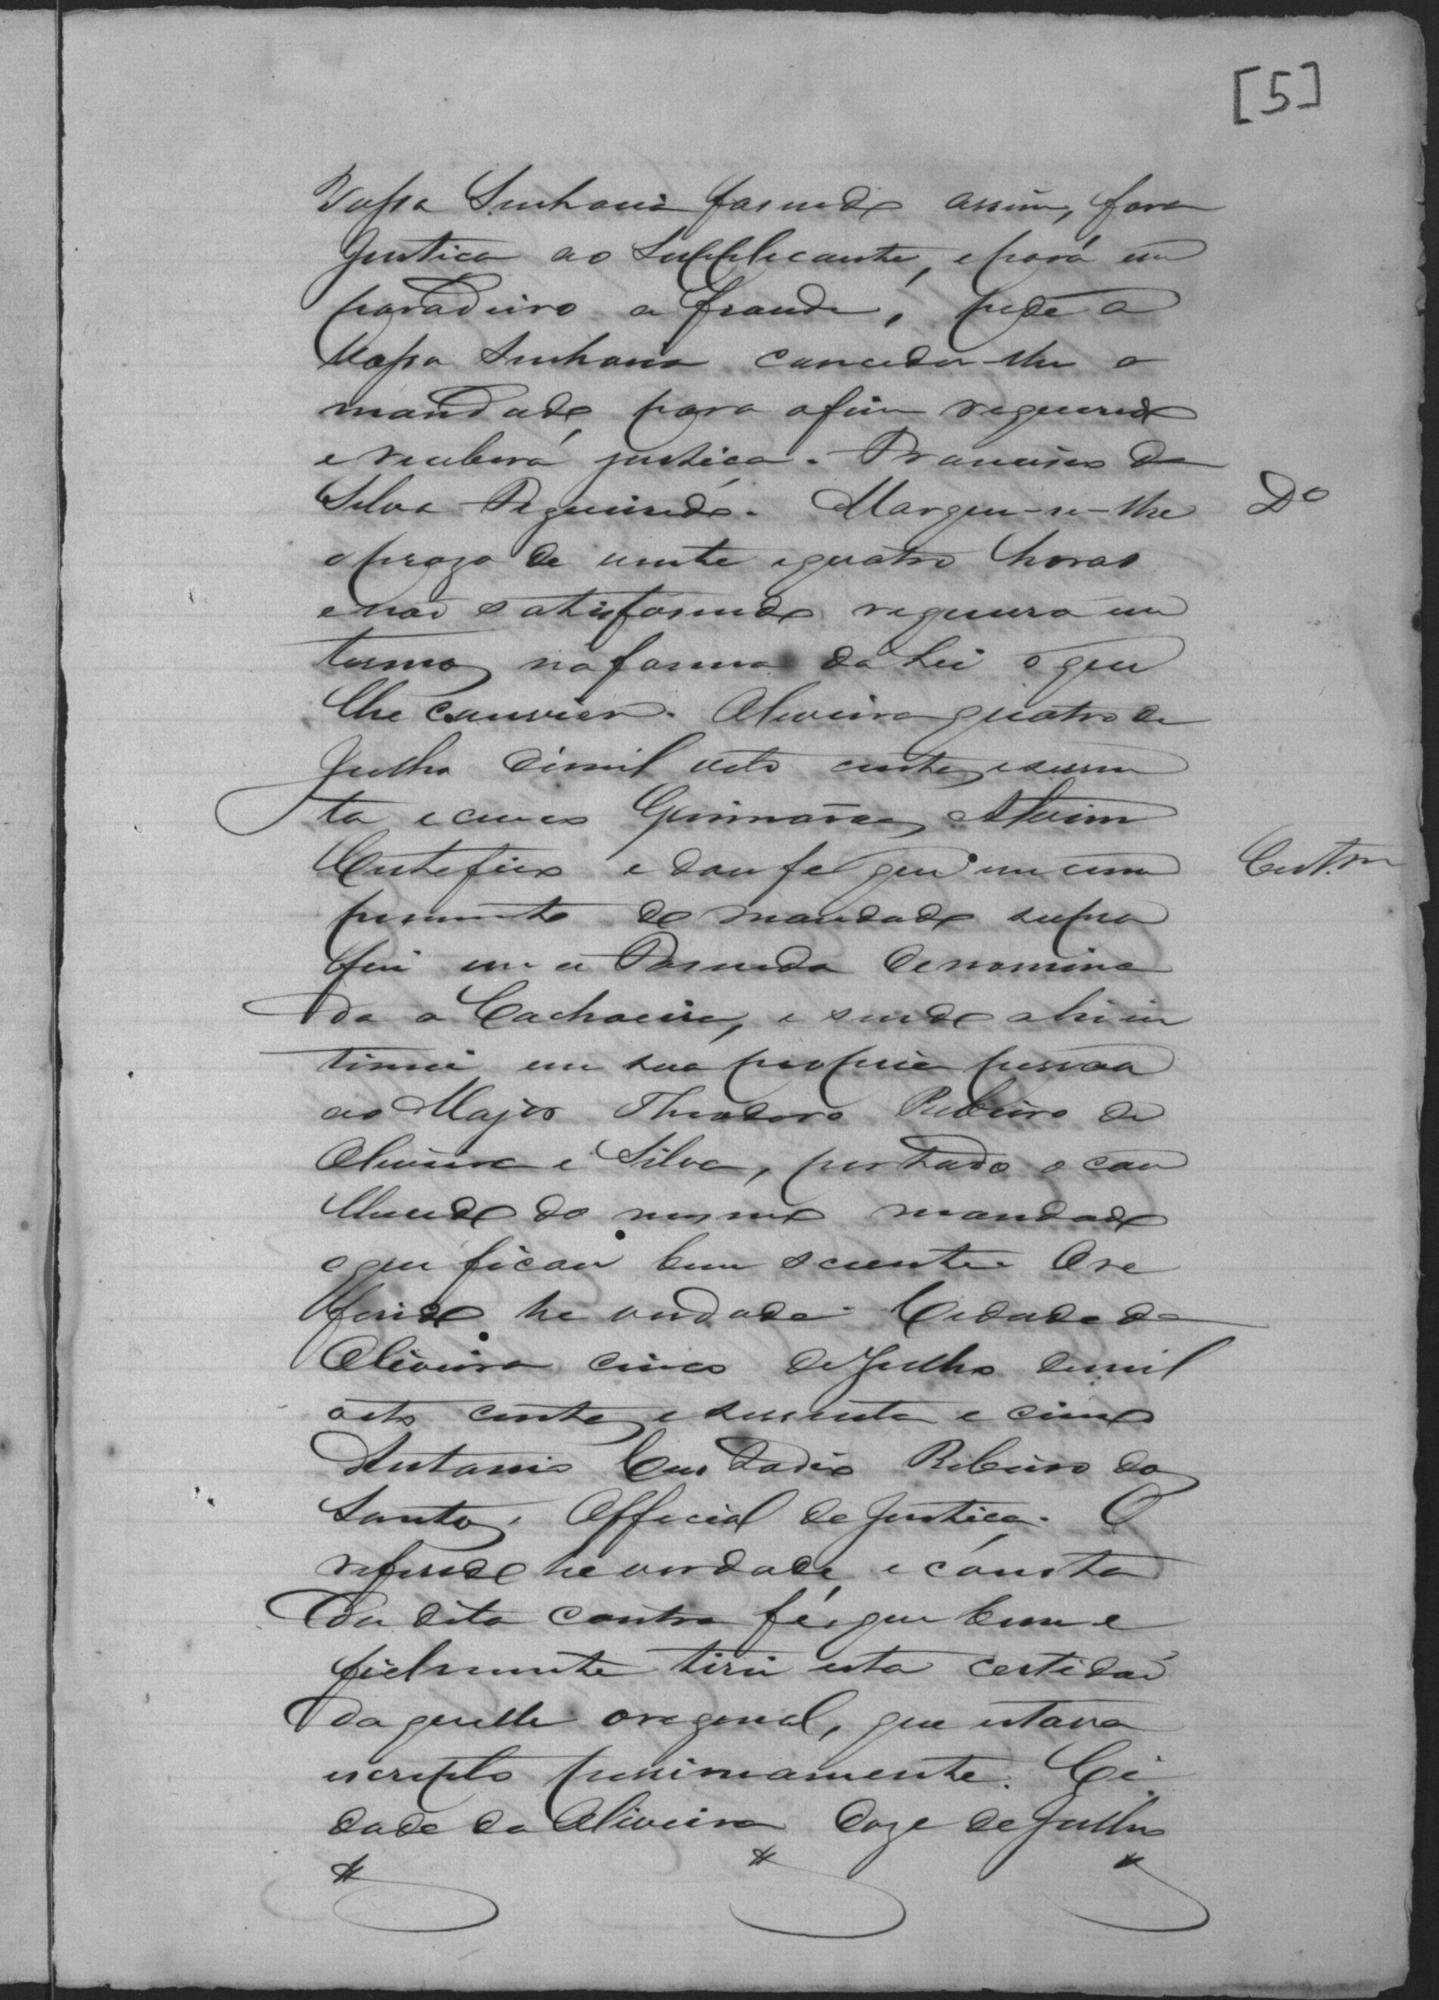 [5]
Vossa Senhoria fasendo assim, fara
Justica ao Supplicante, e porá um
paradeiro a fraude, pede a
Vossa Senhoria conceder-lhe o
mandado para o fim requerido
e receberá justiça. Francisco da
Silva Figueiredo. Marquei-se-lhe Do
o prazo de vinte e quatro horas
e não satisfasendo requeira em
termos na forma da Lei o que
lhe convier. Oliveira quatro de
Julho demil oito centos e sessen
ta e cinco Guimarães Alvim
Certefico e dou fé que em cum Cert.am
primento do mandado supra
fui em a Fasenda denomina
da a Cachoeira, e sendo ahi in
timei em sua propria pessoa
ao Major Theodoro Ribeiro de
Oliveira e Silva, por todo o con
theudo do mesmo mandado
o que ficou bem sciente. O re
ferido he verdade. Cidade da
Oliveira cinco de Julho demil
oito centos e sessenta e cinco
Antonio Custodio Ribeiro dos
Santos, Official de Justiça. O
referido he verdade, e consta
da dita contra fé, que bem e
fielmente tirei esta certidão
daquelle original, que estava
escripto pessimamente. Ci
dade da Oliveira doze de Julho